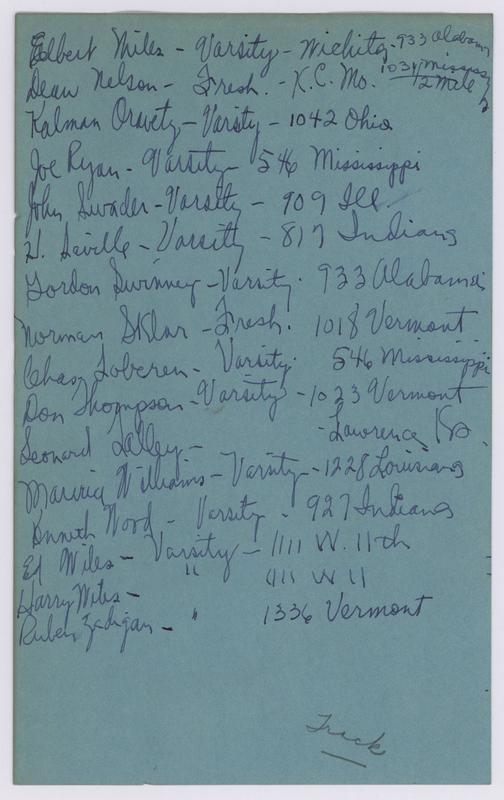 Elbert Miles - Varsity - Wichita - 933 Alabama
Dean Nelson - Fresh. - K.C. Mo. 1031 Mississippi
1/2 Mile
Kalman Oravetz - Varsity - 1042 Ohio
Joe Ryan - Varsity - 546 Mississippi
John Swader - Varsity - 909 Ill.
H. Saville - Varsity - 817 Indiana
Gordon Swinney - Varsity. 933 Alabama
Norman Sklar - Fresh. 1018 Vermont
Chas. - Varsity. 546 Mississippi
Don Thompson - Varsity - 1023 Vermont
Leonard - - Lawrence Ks.
Maurice Williams - Varsity - 1228 Louisiana
Kenneth Wood - Varsity - 927 Indiana
Ed Wiles - Varsity - 1111 W. 11th
Harry Wiles - " 1111 W 11
Ruben - " 1336 Vermont
Track